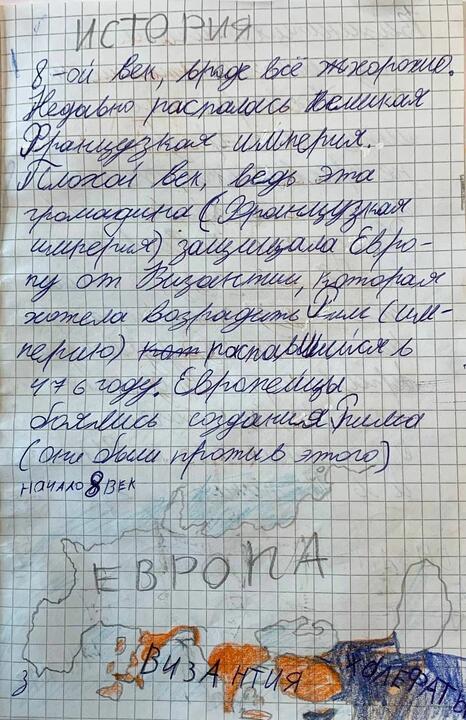 ИСТОРИЯ
8-ой век, вроде всё хорошо.
Недавно распалась великая
Французкая империя.
Плохой век, ведь эта
громадина (Французкая
империя) защищала Евро-
пу от Византии, которая
хотела возрадить Рим (им-
перию) распавшийся в
476 году. Европейцы
боялись создания Рима
(они были против этого)
НАЧАЛО 8 ВЕК
ЕВРОПА
ВИЗАНТИЯ
ХОЛЕФАТЬ
3